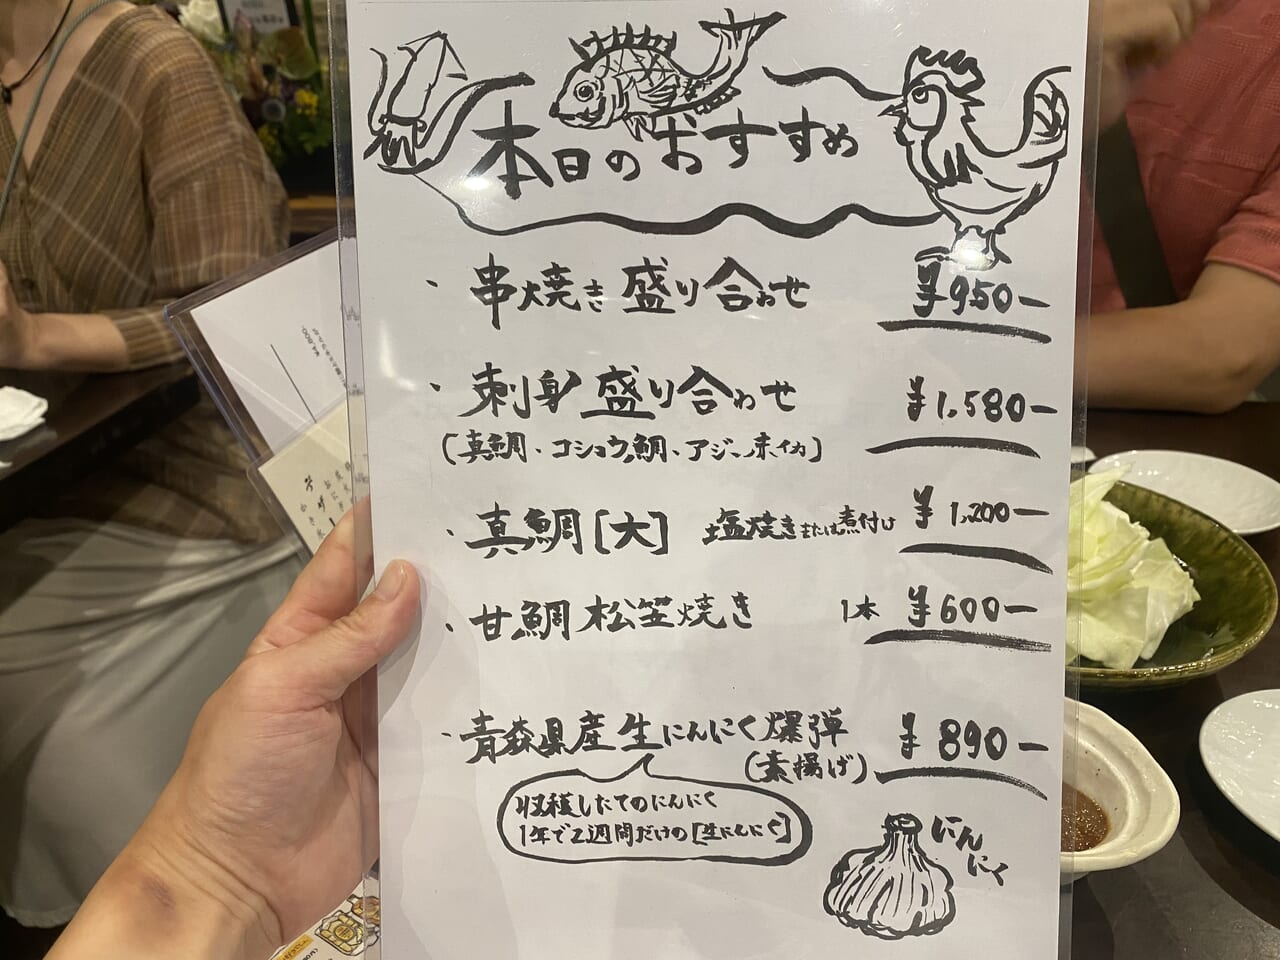 本日のおすすめ
・串焼き盛り合わせ ¥950-
・刺身盛り合わせ ¥1,580-
(真鯛・コショウ鯛・アジ・赤イカ)
・真鯛[大] 塩焼きまたは煮付け ¥1,200-
・甘鯛松笠焼き 1本 ¥600-
・青森県産生にんにく爆弾 ¥890-
(素揚げ)
収穫したてのにんにく
1年で2週間だけの[生にんにく]
にんにく